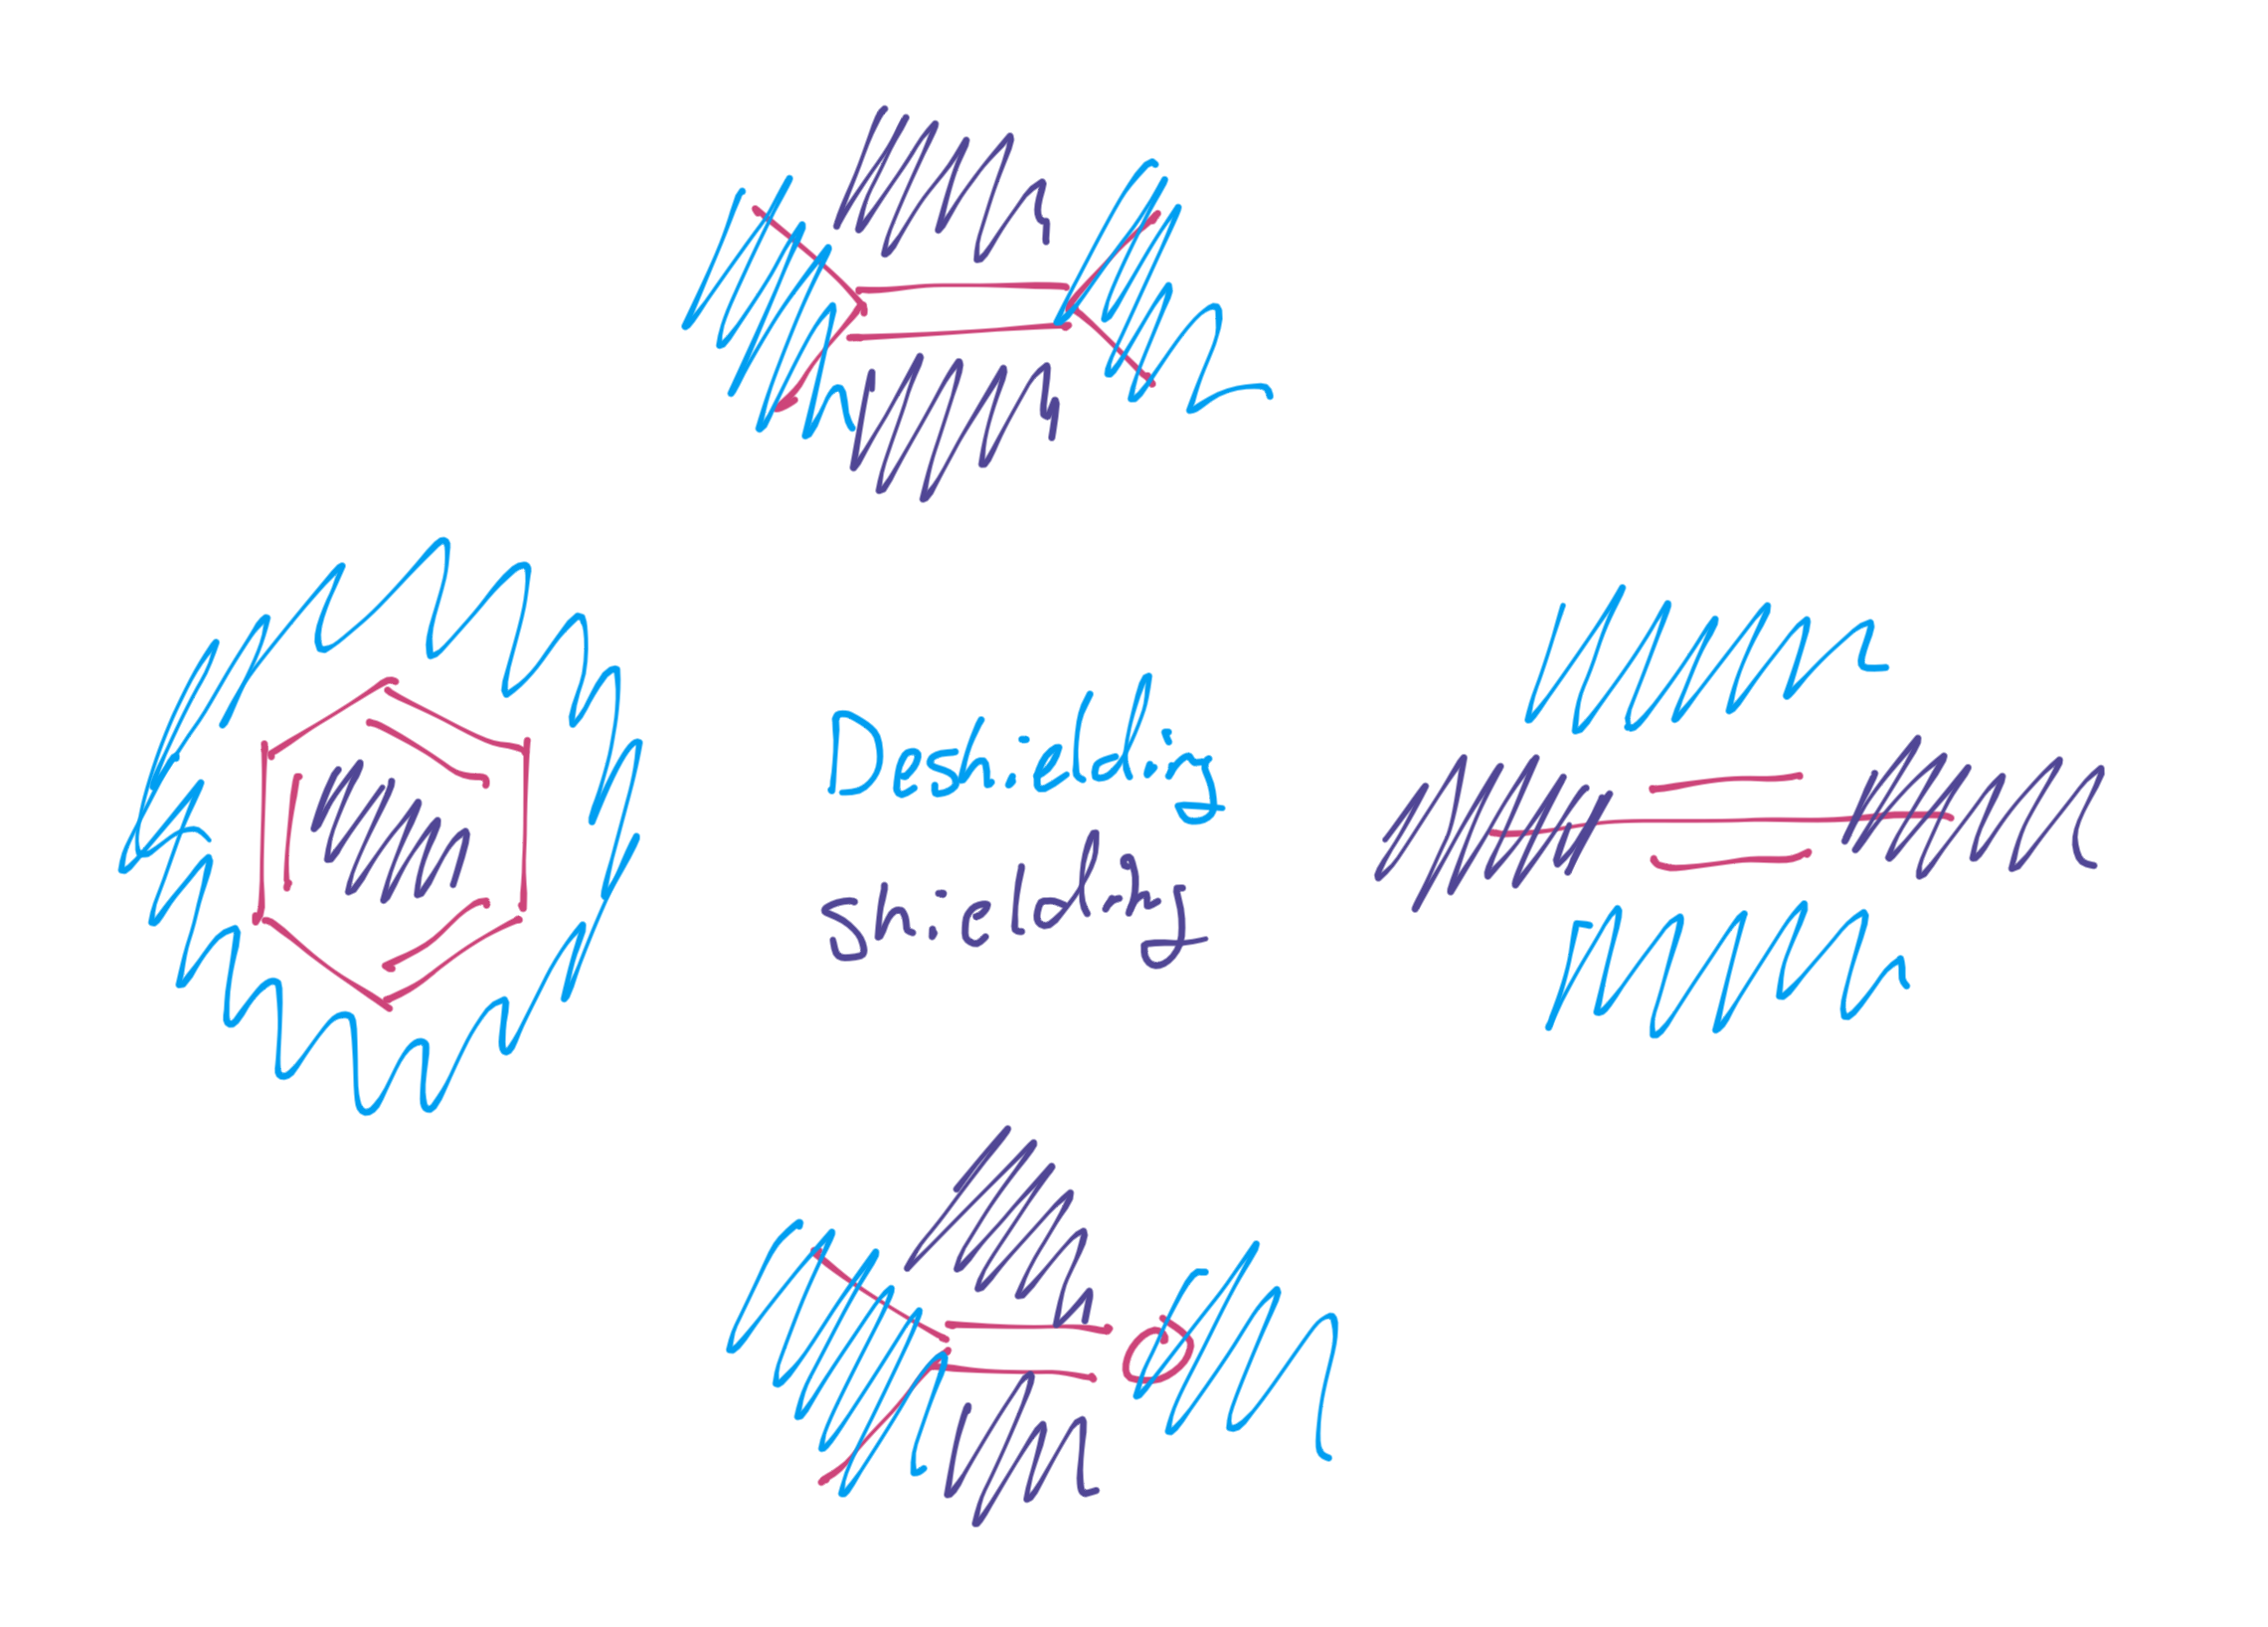 Deshielding
shielding